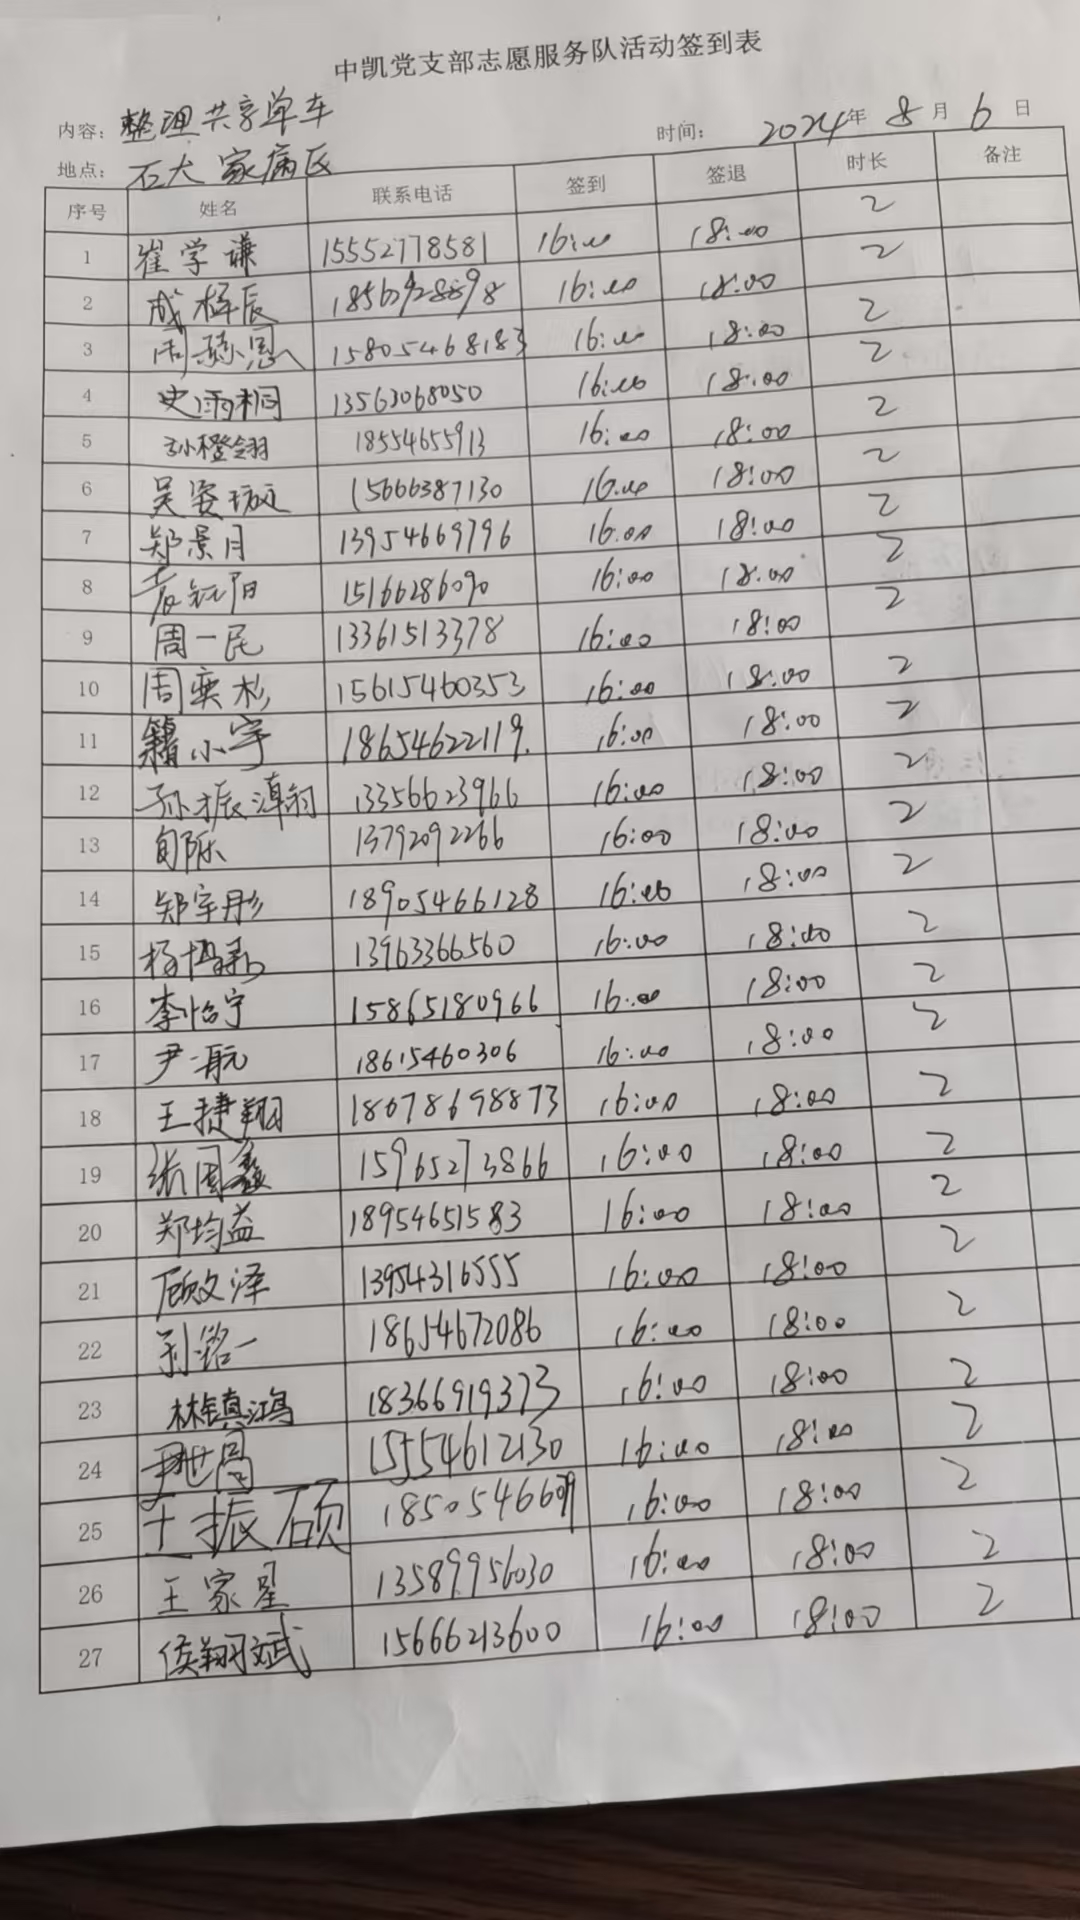 中凯党支部志愿服务队活动签到表
内容: 整理共享单车 时间: 2024年 8月 6日
地点: 石大家属区
序号 姓名 联系电话 签到 签退 时长 备注
1 崔学谦 15552778581 16:00 18:00 2
2 成梓辰 16:00 18:00 2
3 周 恩 15805468183 16:00 18:00 2
4 史雨桐 13563068050 16:00 18:00 2
5 孙橙翎 18554655913 16:00 18:00 2
6 吴姿璇 15666387130 16:00 18:00 2
7 郑景月 13954669796 16:00 18:00 2
8 袁钰阳 15166286090 16:00 18:00 2
9 周一民 13361513378 16:00 18:00 2
10 周奕杉 15615460353 16:00 18:00 2
11 籍小宇 18654622119. 16:00 18:00 2
12 孙振淖翔 13356623966 16:00 18:00 2
13 13792092266 16:00 18:00 2
14 郑宇彤 18905466128 16:00 18:00 2
15 杨 13963366560 16:00 18:00 2
16 李怡宁 15865180966 16:00 18:00 2
17 尹一航 18615460306 16:00 18:00 2
18 王捷翔 18678698873 16:00 18:00 2
19 张国鑫 15965273866 16:00 18:00 2
20 郑均益 18954651583 16:00 18:00 2
21 顾文泽 13954316555 16:00 18:00 2
22 刘铭一 18654672086 16:00 18:00 2
23 林镇鸿 18366919373 16:00 18:00 2
24 15554612130 16:00 18:00 2
25 王振硕 16:00 18:00 2
26 王家星 13589956030 16:00 18:00 2
27 侯翔斌 15666213600 16:00 18:00 2